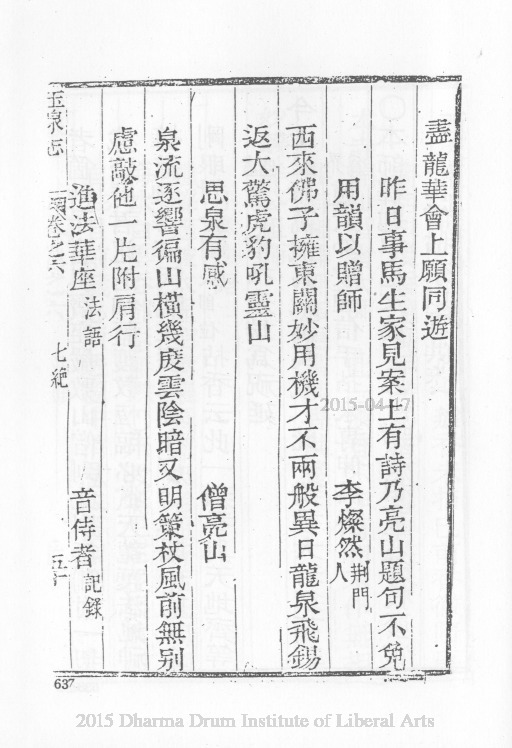 盡龍華會上願同遊
昨日事馬生家見案上有詩乃亮山題句不免
用韻以贈師 李燦然 荆門人
西來佛子擁東關妙用機才不兩般異日龍泉飛錫
返大驚虎豹吼靈山
思泉有感 僧亮山
泉流逐響徧山橫幾度雲陰暗又明策杖風前無别
慮敲他一片附肩行
進法華座 法語 七絶 音侍者 記錄
玉泉志 卷之六
637
2015-04-17
2015 Dharma Drum Institute of Liberal Arts